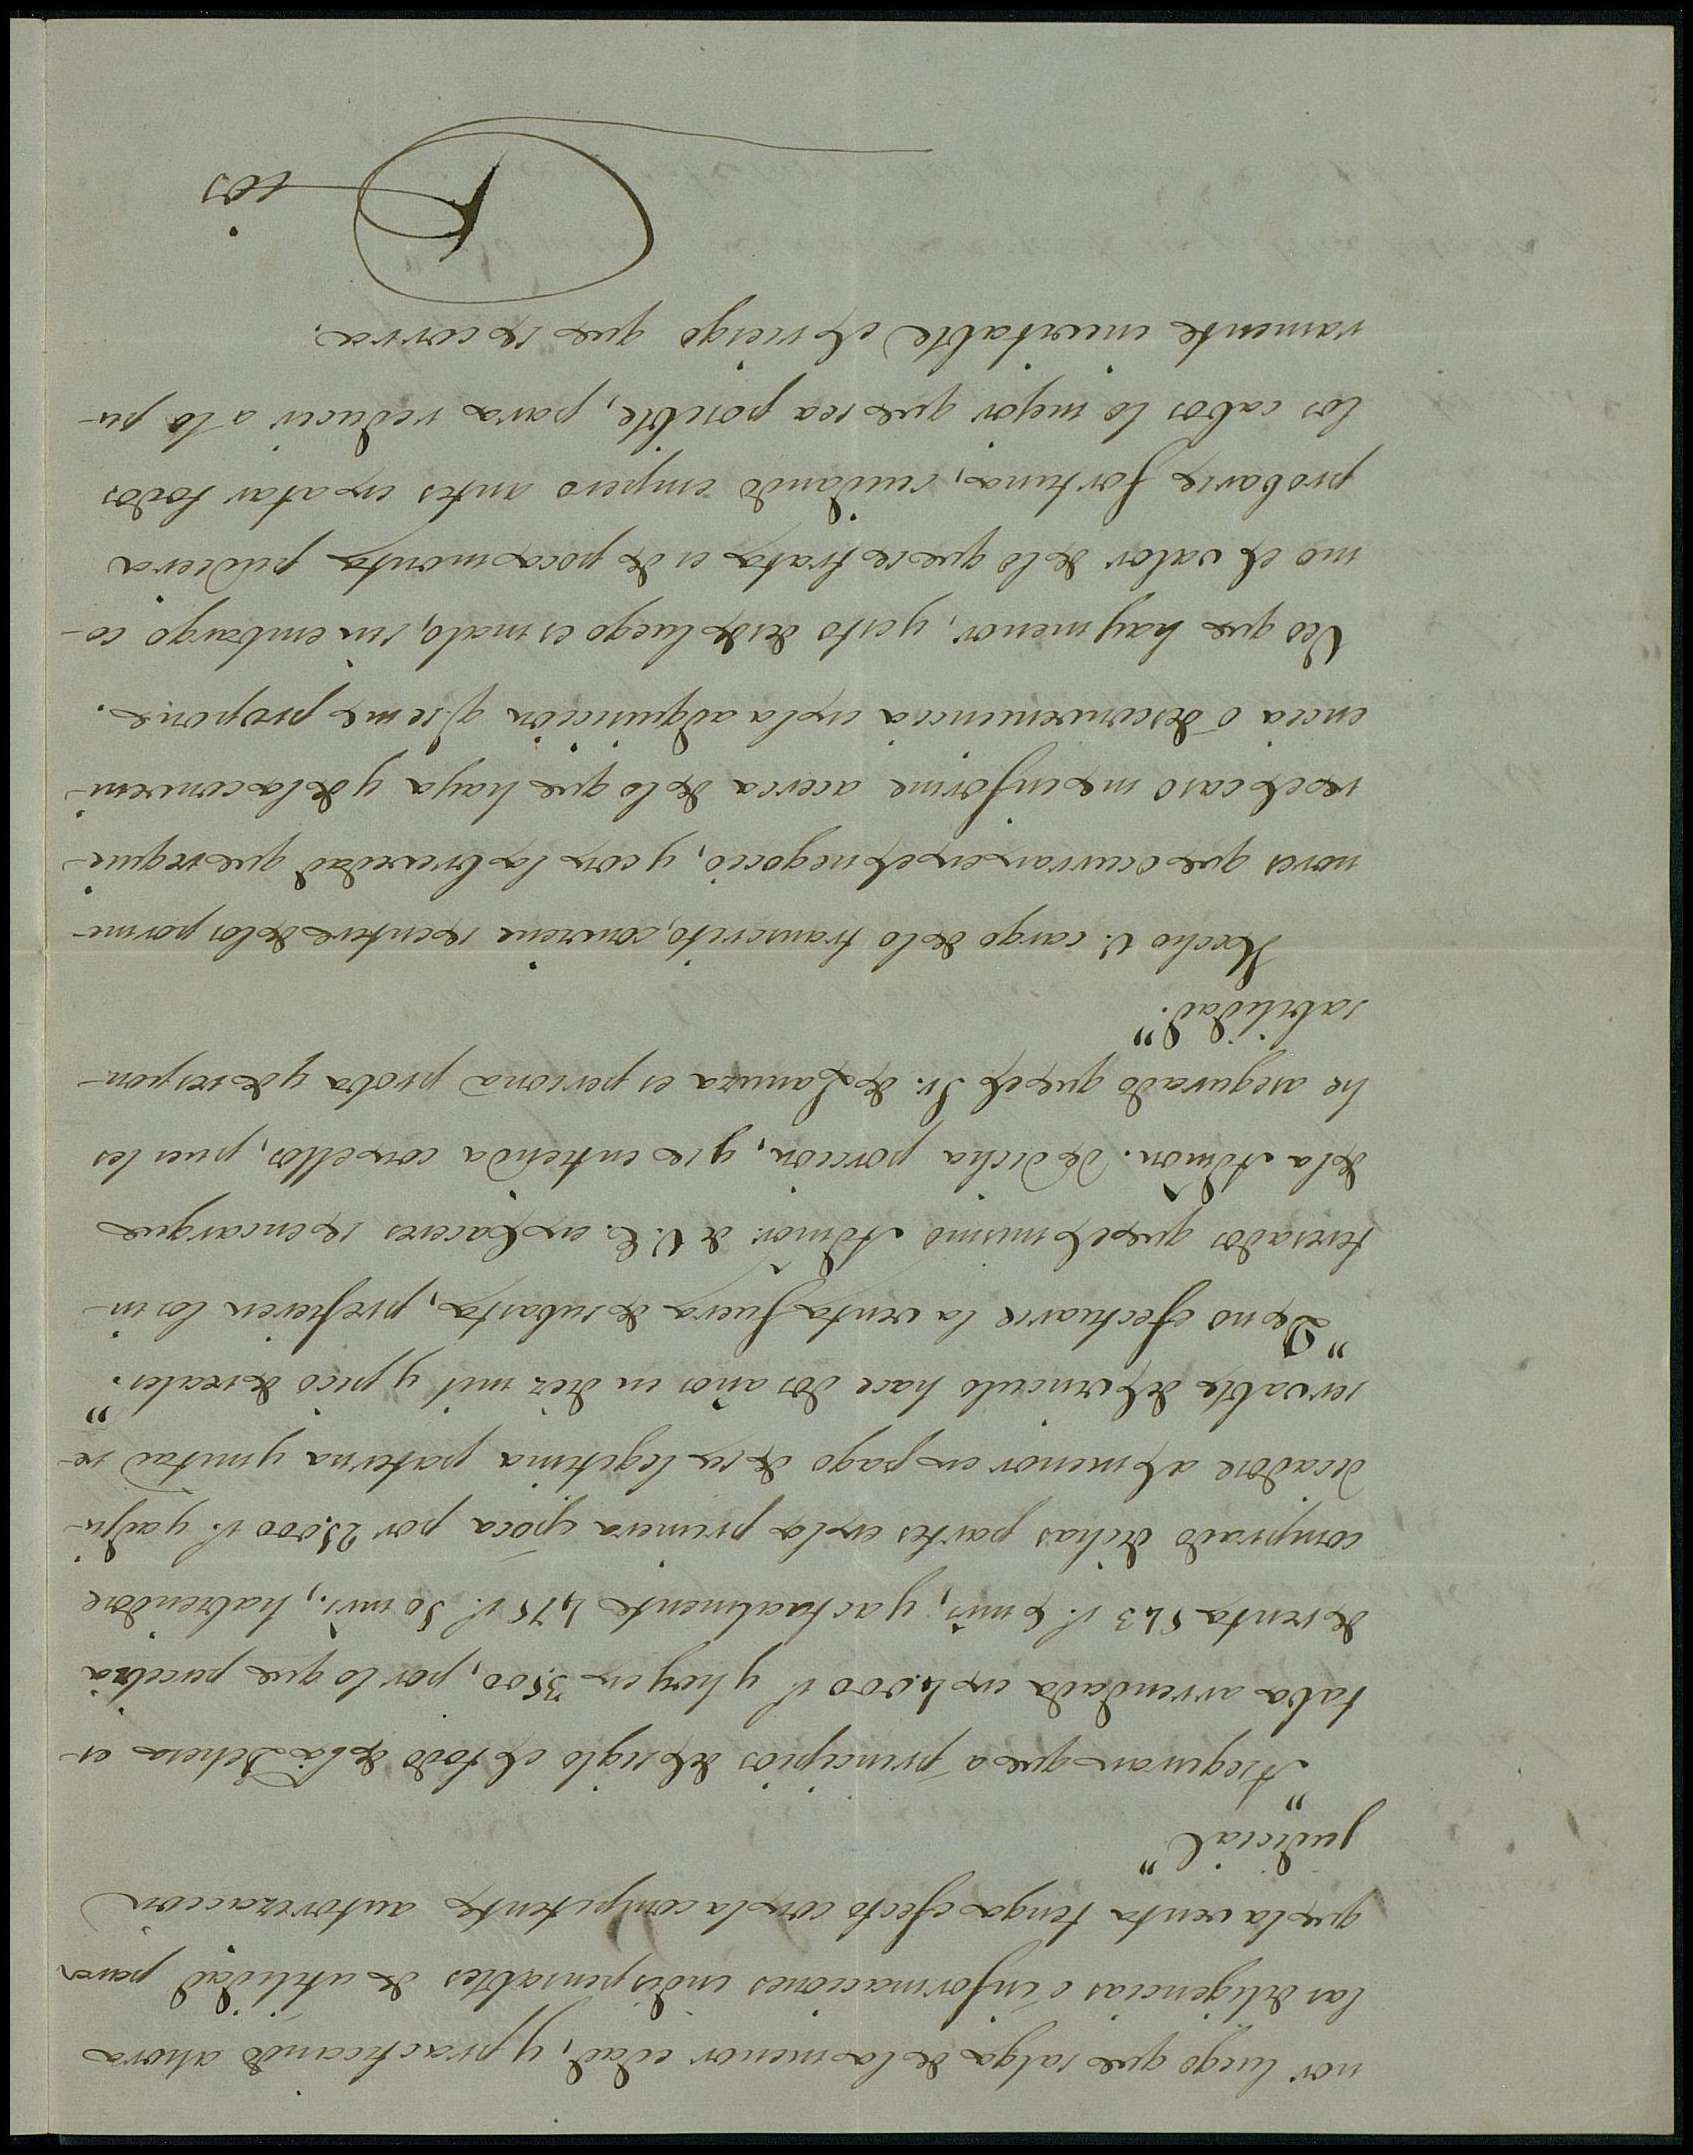 nor luego que salga de la menor edad, y practicando ahora
las diligencias é informaciones indispensables de utilidad para
que la venta tenga efecto con la competente autorizacion
judicial"
"Aseguran que a principios del siglo el todo de la Dehesa es-
taba arrendada en 4,000 r.s y hoy en 3500, por lo que percibia
de renta 543 r.s 6 m.s, y actualmente 475 r.s 10 m.s, habiendose
comprado dichas partes en la primera época por 25,000 r.s y adju-
dicadose al menor en pago de su legitima paterna y mitad re-
servable del vinculo hace dos años en diez mil y pico de reales."
"De no efectuarse la venta fuera de subasta, prefieren los in-
teresados que el mismo Admor. de V.E. en Caceres se encargue
de la Admon. de dicha porcion, y se entienda con ellos, pues les
he asegurado que el Sr. de Lanuza es persona proba y de respon-
sabilidad."
Hecho V. cargo de lo transcrito, conviene se entere de los porme-
nores que ocurran en el negocio, y con la brevedad que requie-
re el caso me informe acerca de lo que haya y de la conveni-
encia ó desconveniencia en la adquisicion q.e se me propone.
Veo que hay menor, y esto desde luego es malo, sin embargo co-
mo el valor de lo que se trata es de poca monta pudiera
probarse fortuna, cuidando empero antes en atar todos
los cabos lo mejor que sea posible, para reducir a lo pu-
ramente inevitable el riesgo que se corra.
Dios